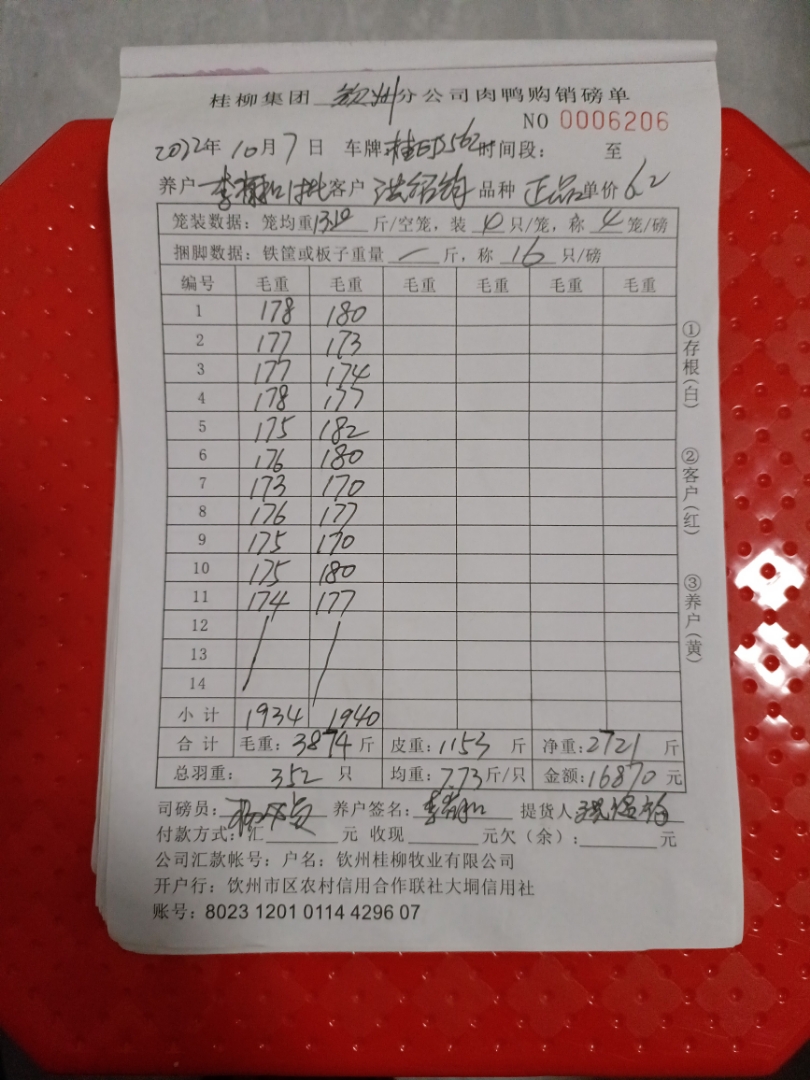 桂柳集团 钦州 分公司肉鸭购销磅单
NO 0006206
2022年 10月 7日 车牌 桂 562 时间段: 至
养户 李 客户 洪绍锦 品种 正品 单价 6.2
笼装数据: 笼均重 13.10 斤/空笼, 装 4 只/笼, 称 4 笼/磅
捆脚数据: 铁筐或板子重量 一 斤, 称 16 只/磅
编号 毛重 毛重 毛重 毛重 毛重 毛重
1 178 180
2 177 173
3 177 174
4 178 177
5 175 182
6 176 180
7 173 170
8 176 177
9 175 170
10 175 180
11 174 177
12
13
14
小计 1934 1940
合计 毛重: 3874 斤 皮重: 1153 斤 净重: 2721 斤
总羽重: 352 只 均重: 7.73 斤/只 金额: 16870 元
司磅员: 养户签名: 李 提货人
付款方式: 汇 元 收现 元欠(余): 元
公司汇款帐号: 户名: 钦州桂柳牧业有限公司
开户行: 钦州市区农村信用合作联社大垌信用社
账号: 8023 1201 0114 4296 07
①存根(白)
②客户(红)
③养户(黄)